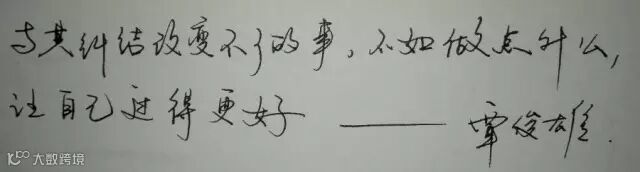 与其纠结改变不了的事，不如做点什么，
让自己过得更好 —— 覃俊雄.
大数跨境